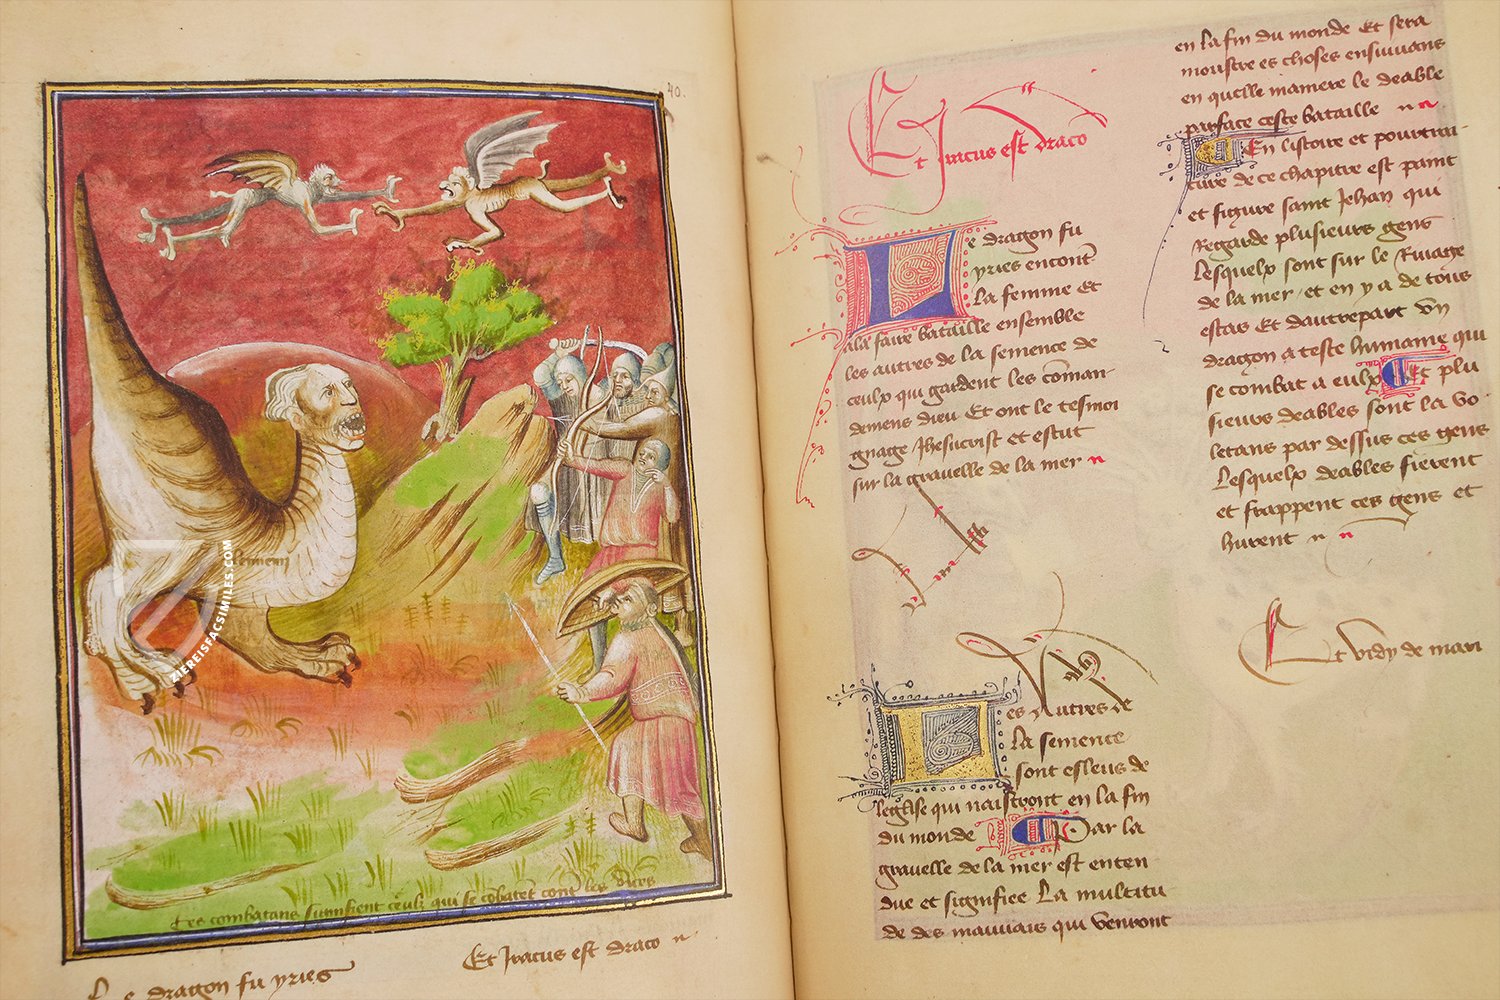 40.
Lennemi
ZIEREISFACSIMILES.COM
Les combatans signifient ceulz qui se cōbatēt contʳ les vices
Et Iratus est draco
Le dragon fu yries
Et Iratus est draco
Le dragon fu
yries encontʳ
la femme et
ala faire bataille ensemble
les autres de la semence de
ceulx qui gardent les cōman-
demens dieu Et ont le tesmoi
gnage Jhesucrist et estut
sur la gravelle de la mer
Les Autres de
la semence
sont esleus de
leglise qui naistront en la fin
du monde Par la
gravelle de la mer est enten
due et signifiee La multitu
de des mauvais qui venront
en la fin du monde Et sera
monstre es choses ensuivans
en quelle maniere le deable
parface ceste bataille
En listoire et pourtrai-
ture de ce chapitre est paint
et figure saint Jehan qui
Regarde plusieurs gens
Lesquelx sont sur le Rivage
de la mer et en y a de tous
estas Et dautrepart vn
dragon a teste humaine qui
se combat a eulx Et plu
sieurs deables sont la vo
letans par dessus ces gens
Lesquelx deables fierent
et frappent ces gens et
hurent
Et vidy de mari